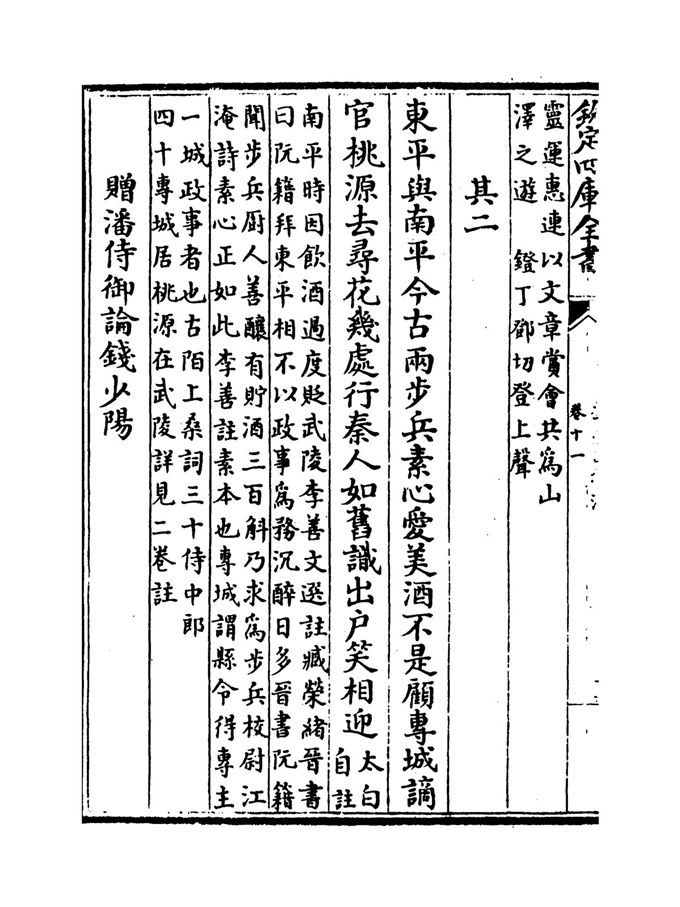 欽定四庫全書
卷十一
靈運惠連以文章賞會共爲山
澤之遊　鐙丁鄧切登上聲
其二
東平與南平今古兩步兵素心愛美酒不是顧專城謫
官桃源去尋花幾處行秦人如舊識出户笑相迎太白
自註
南平時因飲酒過度貶武陵李善文選註臧榮緒晉書
曰阮籍拜東平相不以政事爲務沉醉日多晉書阮籍
聞步兵厨人善釀有貯酒三百斛乃求爲步兵校尉江
淹詩素心正如此李善註素本也專城謂縣令得專主
一城政事者也古陌上桑詞三十侍中郎
四十專城居桃源在武陵詳見二卷註
贈潘侍御論錢少陽